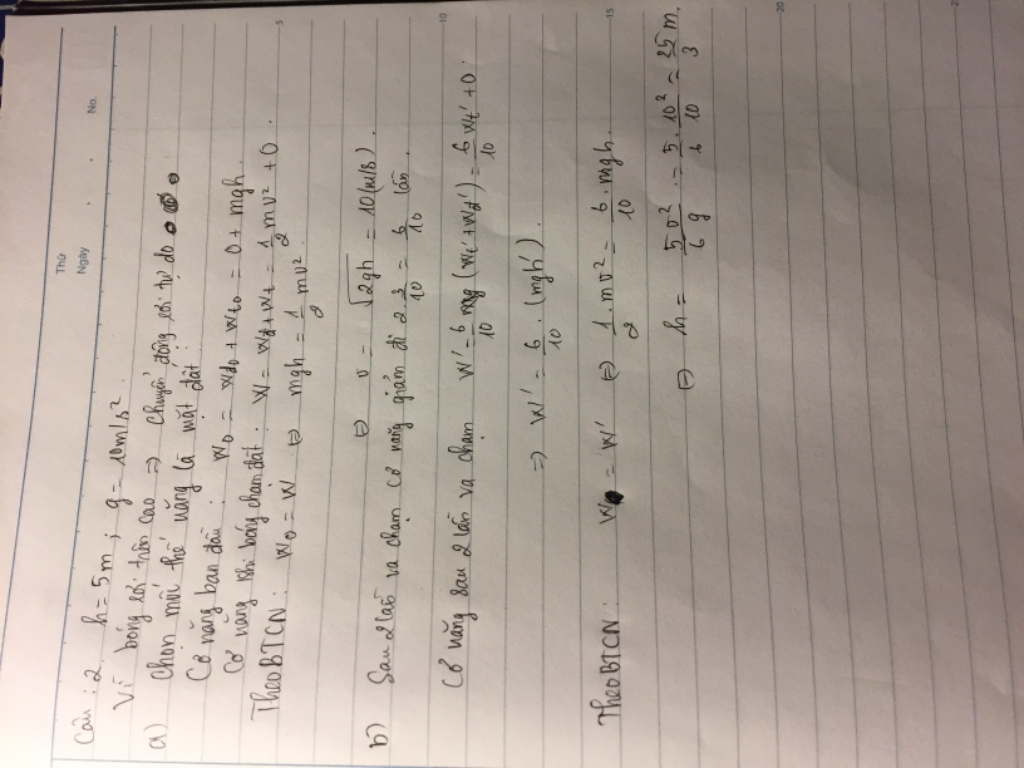 Thứ
Ngày
No.
Câu : 2. h = 5m ; g = 10m/s².
Vì bóng rơi trên cao => chuyển động rơi tự do
a) Chọn mốc thế năng là mặt đất.
Cơ năng ban đầu : W₀ = Wđ₀ + Wt₀ = 0 + mgh.
Cơ năng khi bóng chạm đất. W = Wđ + Wt = 1/2 mv² + 0.
Theo BTCN : W₀ = W (=) mgh = 1/2 mv²
(=) v = √2gh = 10 (m/s).
b) Sau 2 lần va chạm cơ năng giảm đi 2.3/10 = 6/10 lần.
Cơ năng sau 2 lần va chạm W' = 6/10 (Wt' + Wđ') = 6/10 Wt' + 0.
=> W' = 6/10 . (mgh').
Theo BTCN : W = W' (=) 1/2 . mv² = 6/10 . mgh.
(=) h = 5v²/6g = 5/6 . 10²/10 = 25/3 m.
5
10
15
20